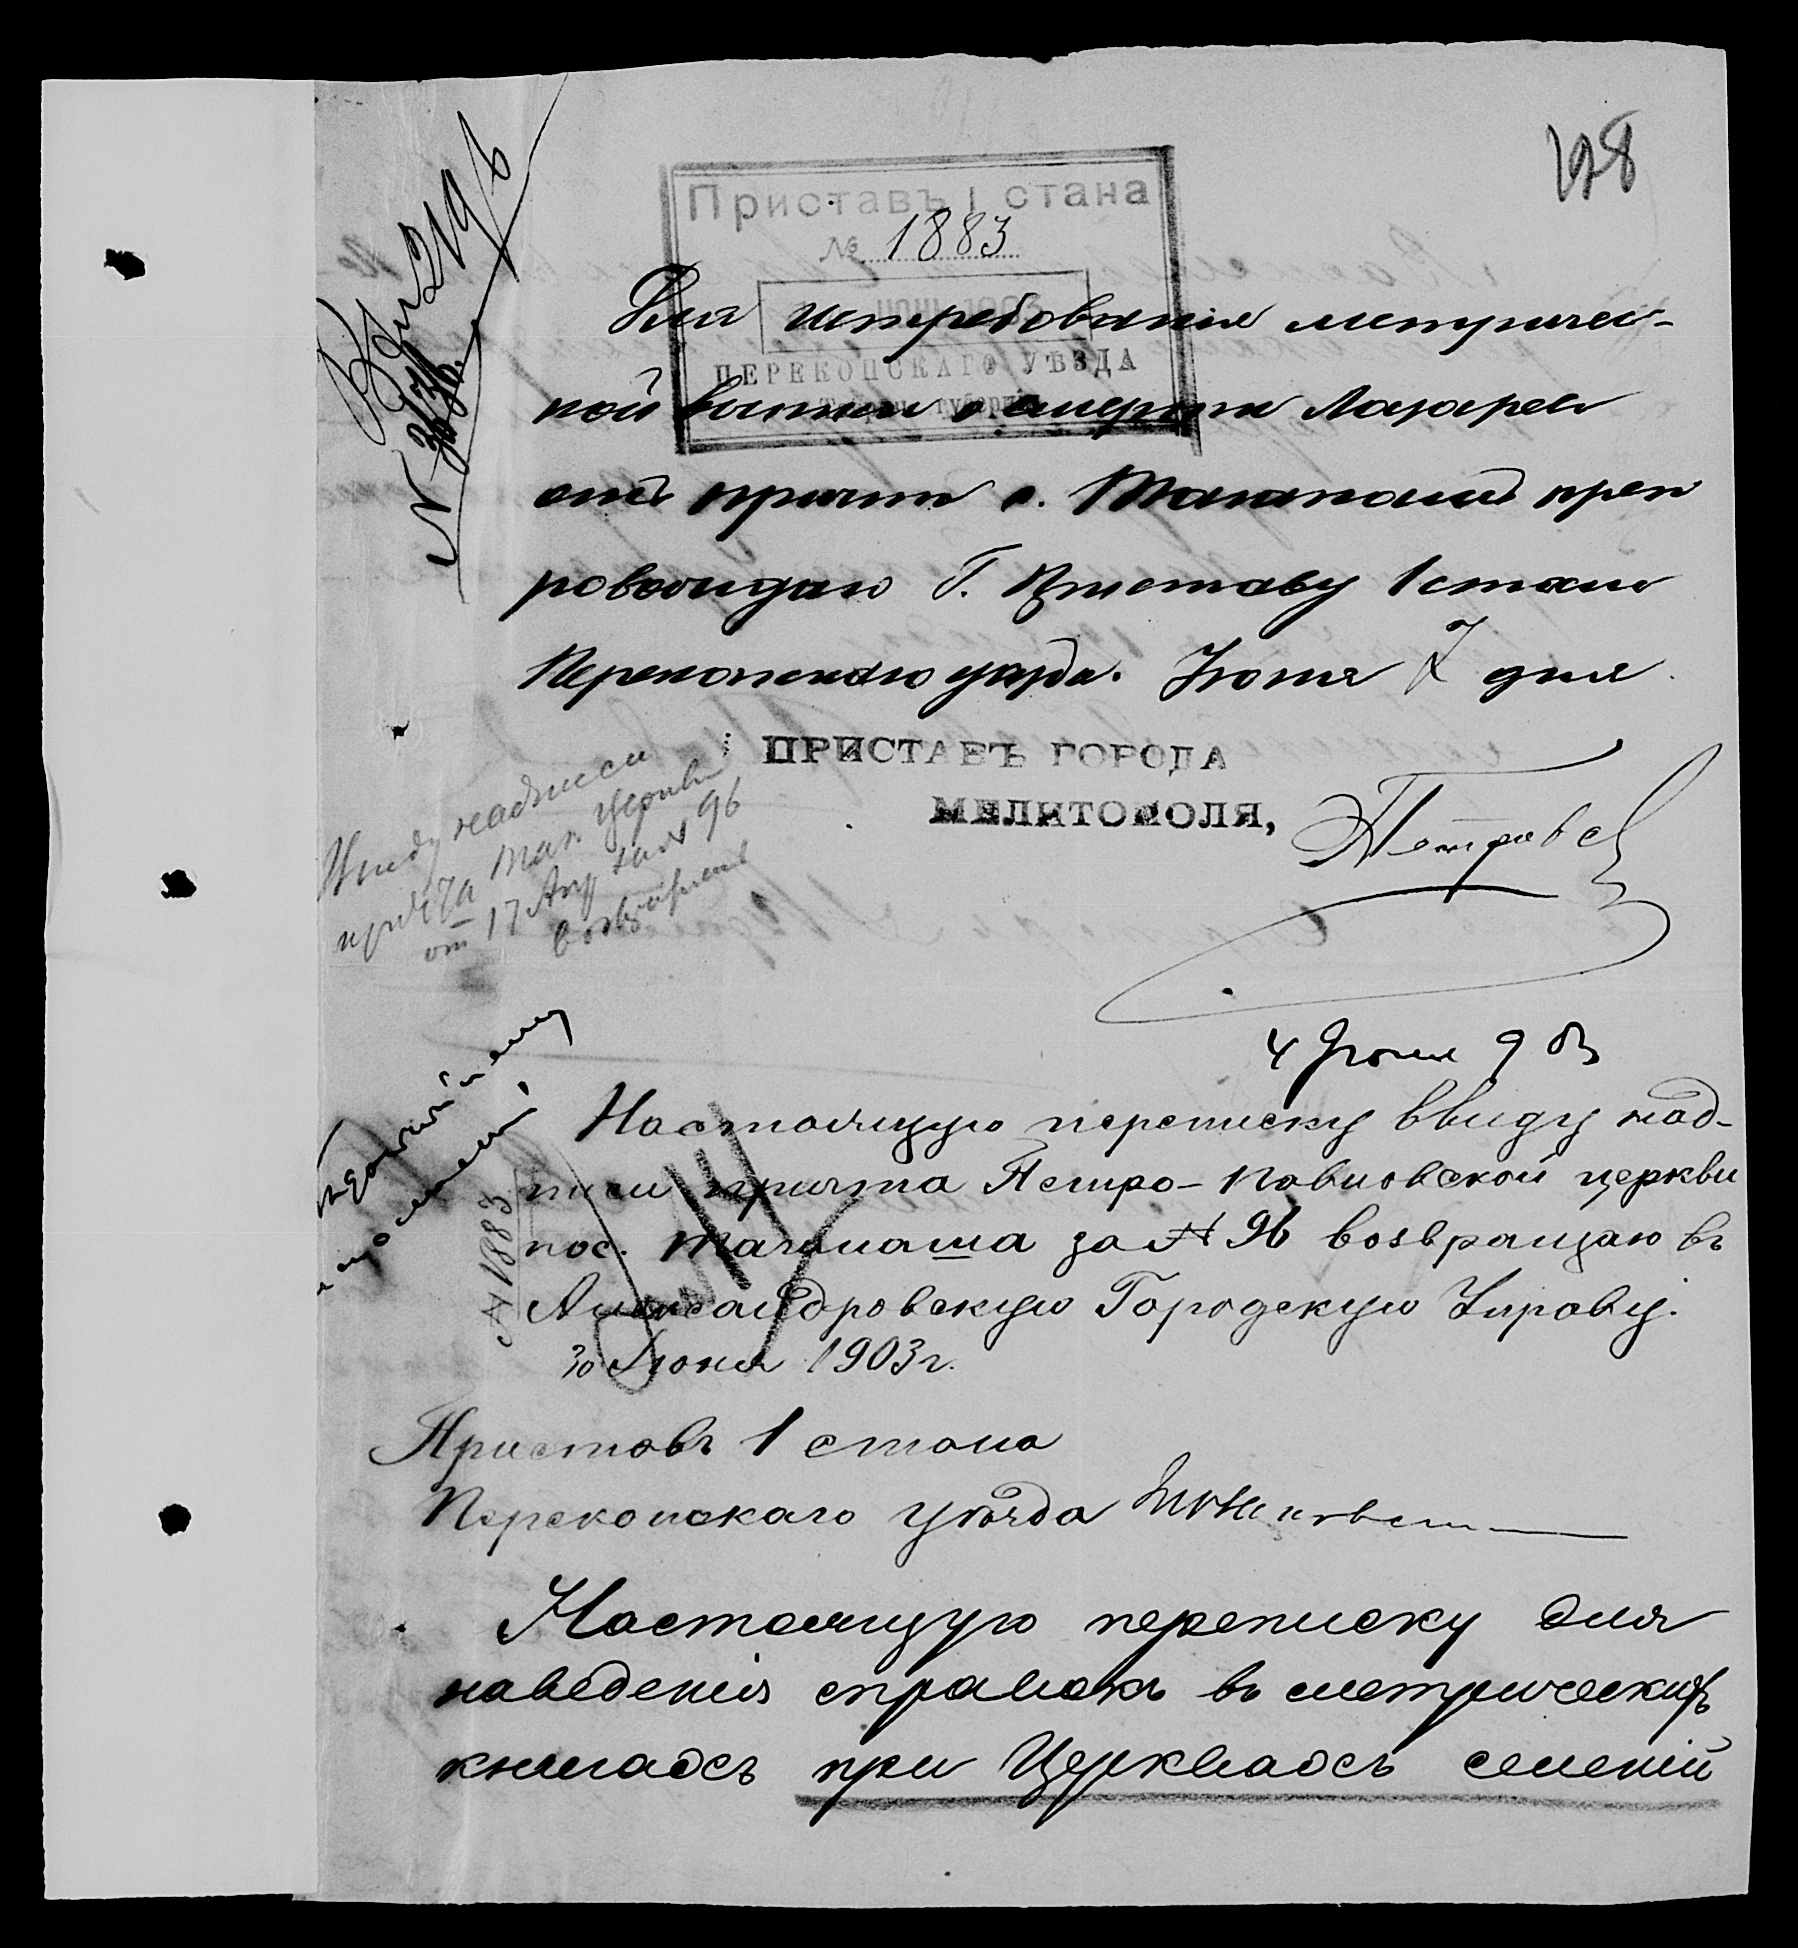 198
Приставъ 1 стана
№ 1883
ПЕРЕКОПСКАГО УѢЗДА
Для истребованія метричес-
кой выписи о смерти Лазарева
отъ причта с. Таганашъ преп
ровождаю Г. Приставу 1 стана
Перекопскаго уѣзда. Іюня 2 дня
ПРИСТАВЪ ГОРОДА
МЕЛИТОПОЛЯ,
Ввиду надписи
причта Таг. церкви
от 17 Авг за № 96
4 Іюня 903
Настоящую переписку ввиду над-
писи причта Петро-Павловской церкви
пос. Таганаша за № 96 возвращаю въ
Александровскую Городскую Управу.
30 Іюня 1903 г.
№ 1883
Приставъ 1 стана
Перекопскаго уѣзда
Настоящую переписку для
наведенія справокъ въ метрическихъ
книгахъ при Церквахъ селеній